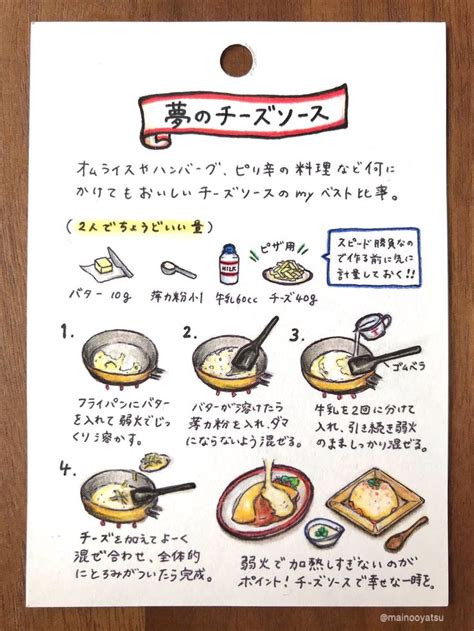 夢のチーズソース
オムライスやハンバーグ、ピリ辛の料理など何に
かけてもおいしいチーズソースのmyベスト比率。
(2人でちょうどいい量)
ピザ用
スピード勝負なの
で作る前に先に
計量しておく!!
MILK
バター 10g 薄力粉小1 牛乳60cc チーズ40g
1.
2.
3.
ゴムベラ
フライパンにバター
を入れて弱火でじっ
くり溶かす。
バターが溶けたら
薄力粉を入れ、ダマ
にならないよう混ぜる。
牛乳を2回に分けて
入れ、引き続き弱火
のましっかり混ぜる。
4.
チーズを加えてよーく
混ぜ合わせ、全体的
にとろみがついたら完成。
弱火で加熱しすぎないのが
ポイント!チーズソースで幸せな一時を。
@mainooyatsu